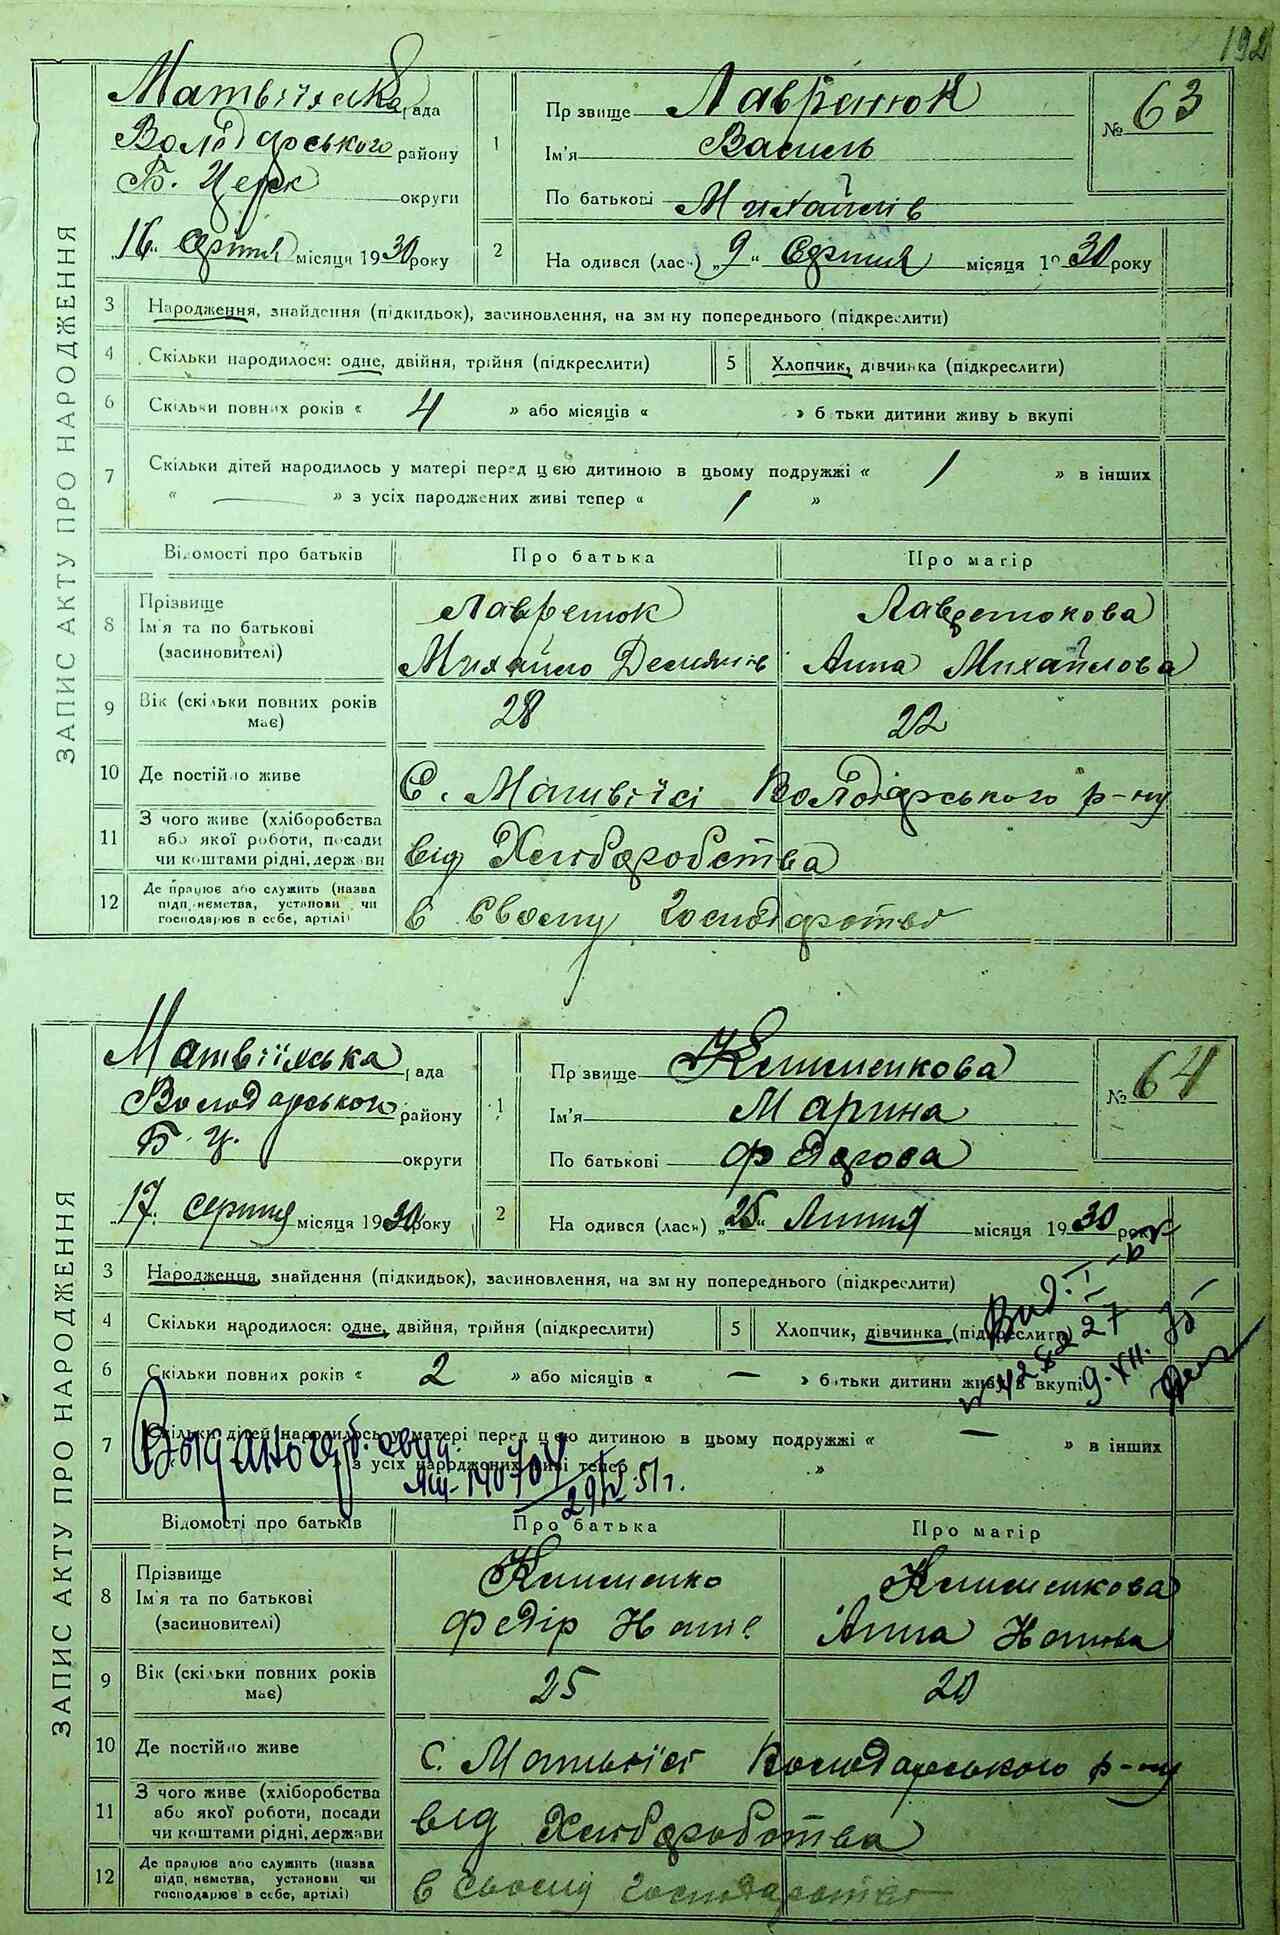 192
ЗАПИС АКТУ ПРО НАРОДЖЕННЯ
Матвіїхська рада
Володарського району
Б. Церк округи
"16" серпня місяця 1930 року
1 Прізвище Лавренюк
Ім'я Василь
По батькові Михайлів
№ 63
2 Народився (лась) "9" Серпня місяця 1930 року
3 Народження, знайдення (підкидьок), засиновлення, на зміну попереднього (підкреслити)
4 Скільки народилося: одне, двійня, трійня (підкреслити)
5 Хлопчик, дівчинка (підкреслити)
6 Скільки повних років « 4 » або місяців « » батьки дитини живуть вкупі
7 Скільки дітей народилось у матері перед цією дитиною в цьому подружжі « 1 » в інших
« — » з усіх народжених живі тепер « 1 »
Відомості про батьків Про батька Про матір
8 Прізвище
Ім'я та по батькові
(засиновителі)
Лавренюк
Михайло Демянів
Лавренюкова
Анна Михайлова
9 Вік (скільки повних років має) 28 22
10 Де постійно живе С. Матвіїсі Володарського р-ну
11 З чого живе (хліборобства
або якої роботи, посади
чи коштами рідні, держави
від Хліборобства
12 Де працює або служить (назва
підприємства, установи чи
господарює в себе, артілі)
в своєму господарстві
ЗАПИС АКТУ ПРО НАРОДЖЕННЯ
Матвіїхська рада
Володарського району
Б. Ц. округи
"17" серпня місяця 1930 року
1 Прізвище Клименкова
Ім'я Марина
По батькові Федорова
№ 64
2 Народився (лась) "25" Липня місяця 1930 року
3 Народження, знайдення (підкидьок), засиновлення, на зміну попереднього (підкреслити)
4 Скільки народилося: одне, двійня, трійня (підкреслити)
5 Хлопчик, дівчинка (підкреслити)
6 Скільки повних років « 2 » або місяців « — » батьки дитини живуть вкупі
7 Скільки дітей народилось у матері перед цією дитиною в цьому подружжі « — » в інших
з усіх народжених живі тепер »
Вид.
9.XII.
Выдано
Відомості про батьків Про батька Про матір
8 Прізвище
Ім'я та по батькові
(засиновителі)
Клименко
Федір
Клименкова
Анна
9 Вік (скільки повних років має) 25 20
10 Де постійно живе С. Матвіїсі Володарського р-ну
11 З чого живе (хліборобства
або якої роботи, посади
чи коштами рідні, держави
від Хліборобства
12 Де працює або служить (назва
підприємства, установи чи
господарює в себе, артілі)
в своєму господарстві